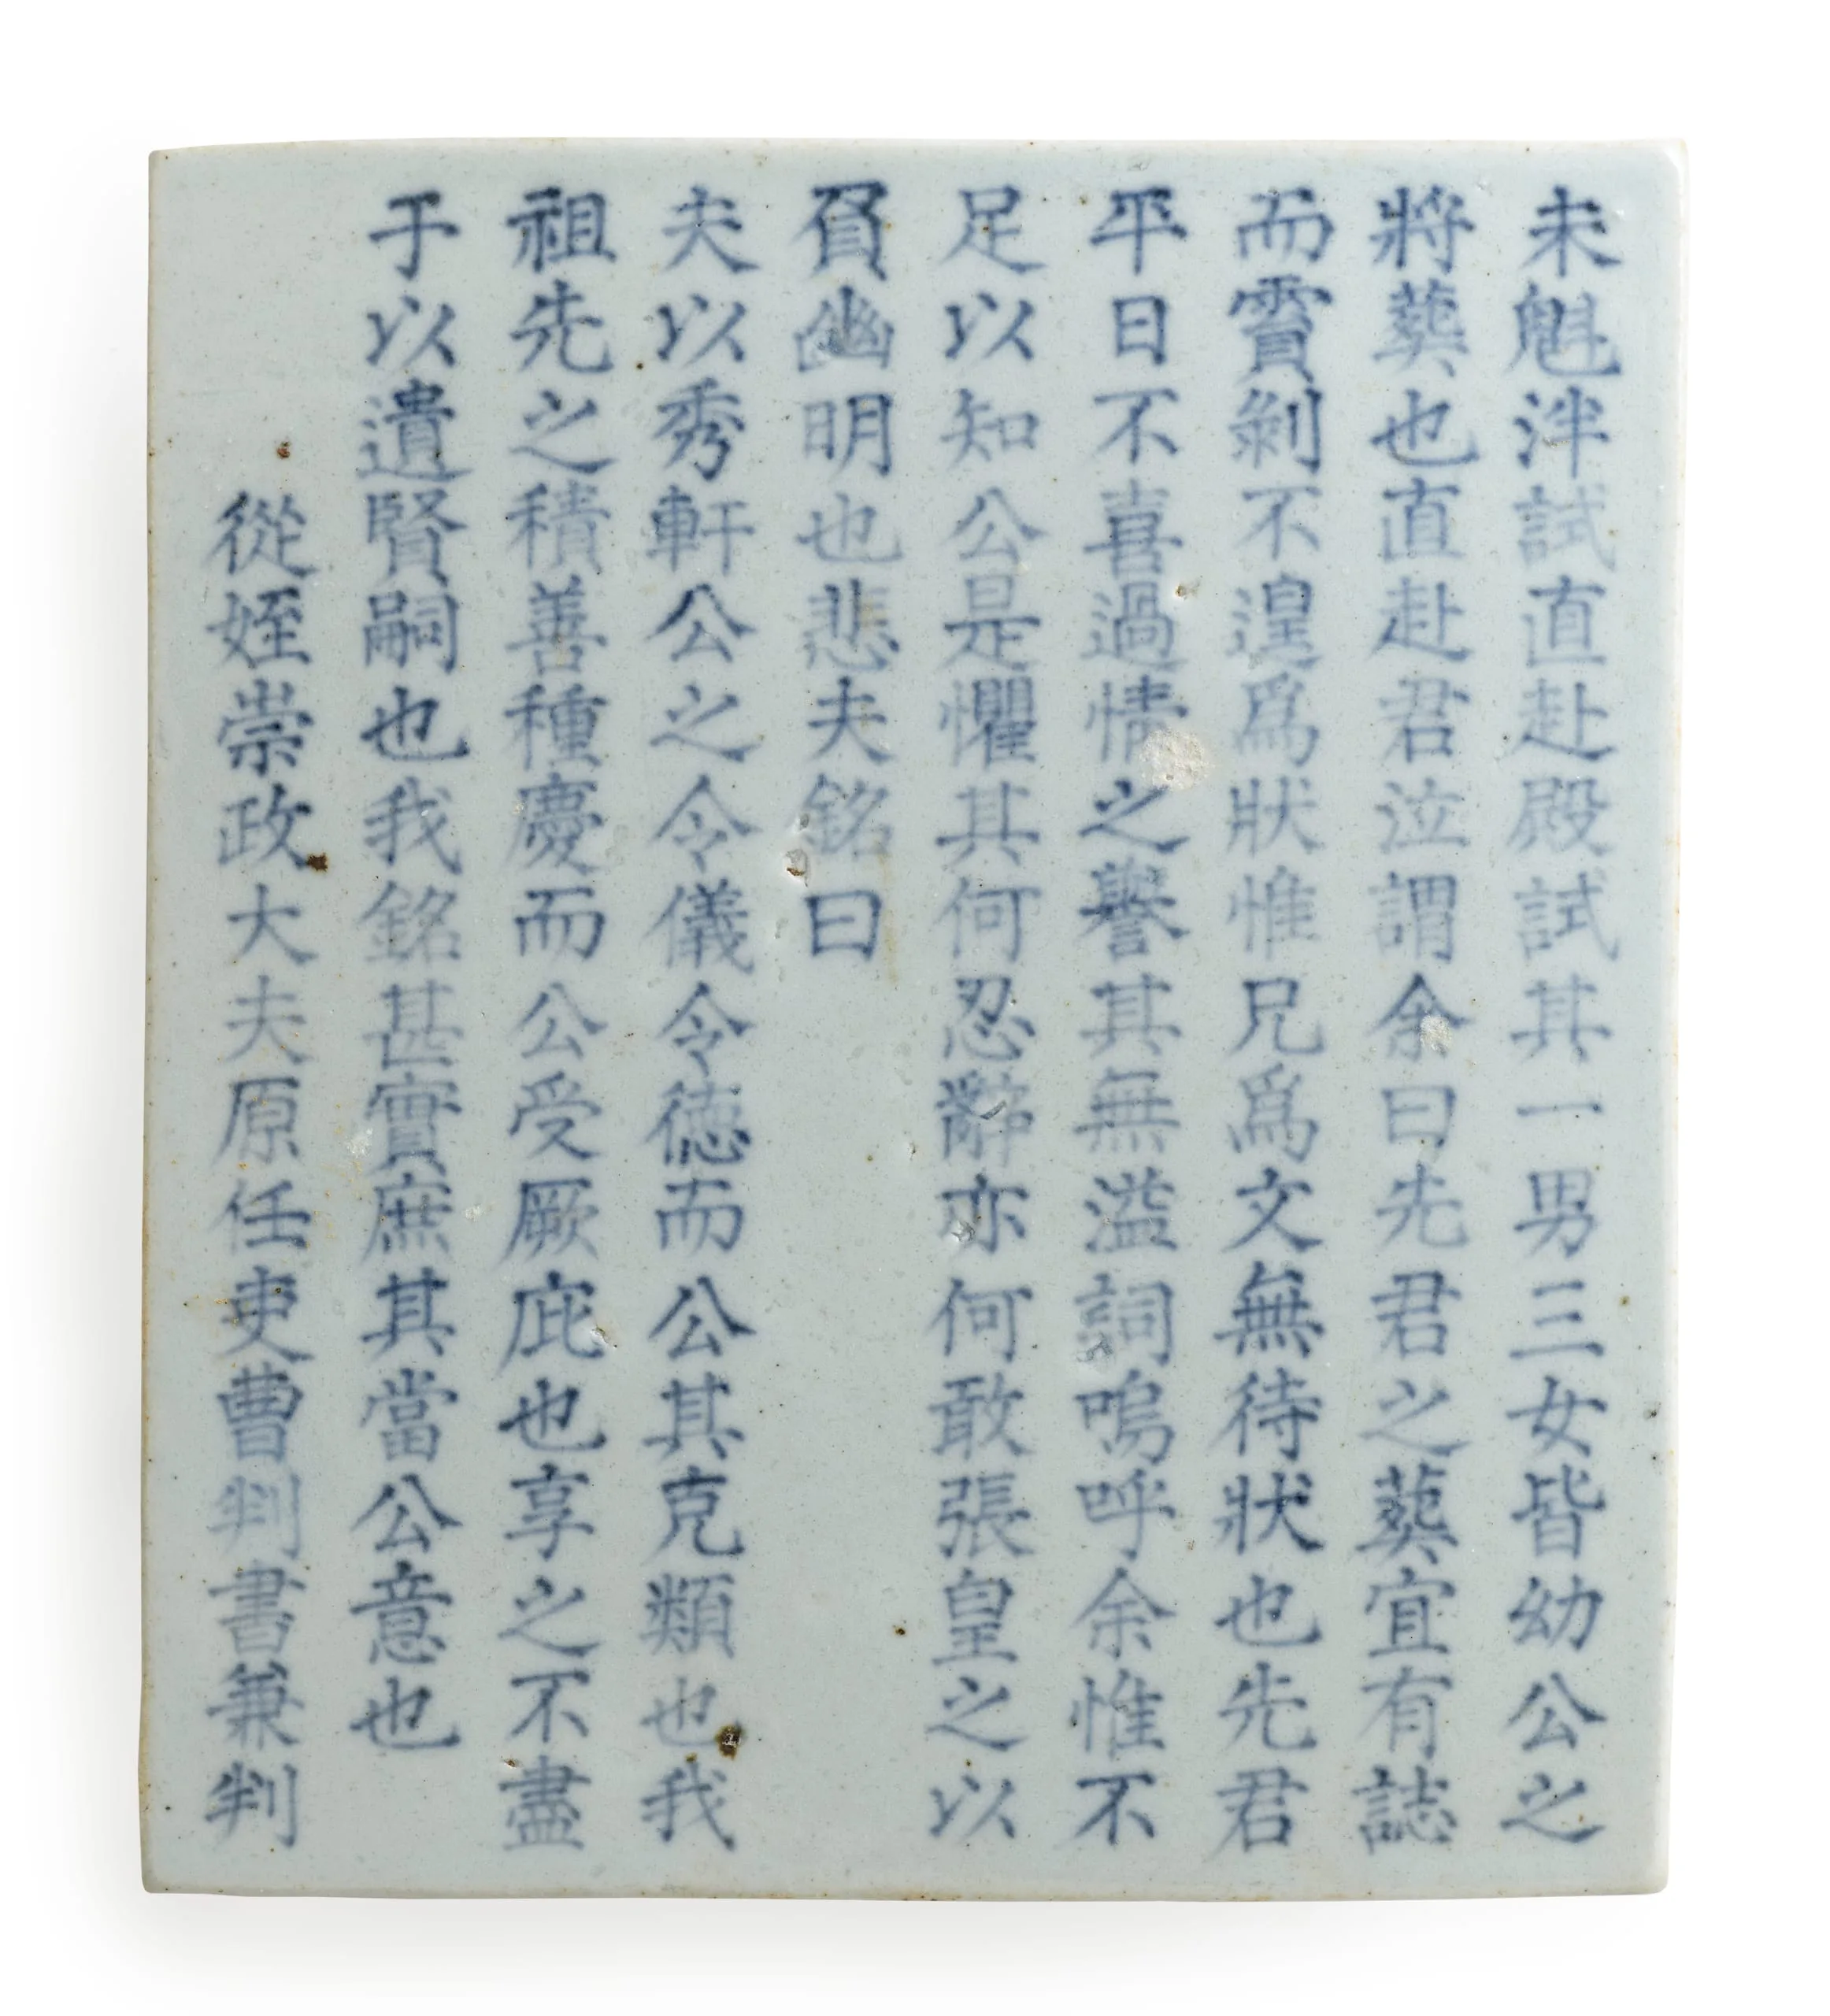 未魁泮試直赴殿試其一男三女皆幼公之
將葬也直赴君泣謂余曰先君之葬宜有誌
而賨剝不遑爲狀惟兄爲文無待狀也先君
平日不喜過情之譽其無溢詞嗚呼余惟不
足以知公是懼其何忍辭亦何敢張皇之以
負幽明也悲夫銘曰
夫以秀軒公之令儀令德而公其克類也我
祖先之積善種慶而公受厥庇也享之不盡
于以遺賢嗣也我銘甚實庶其當公意也
從姪崇政大夫原任吏曹判書兼判